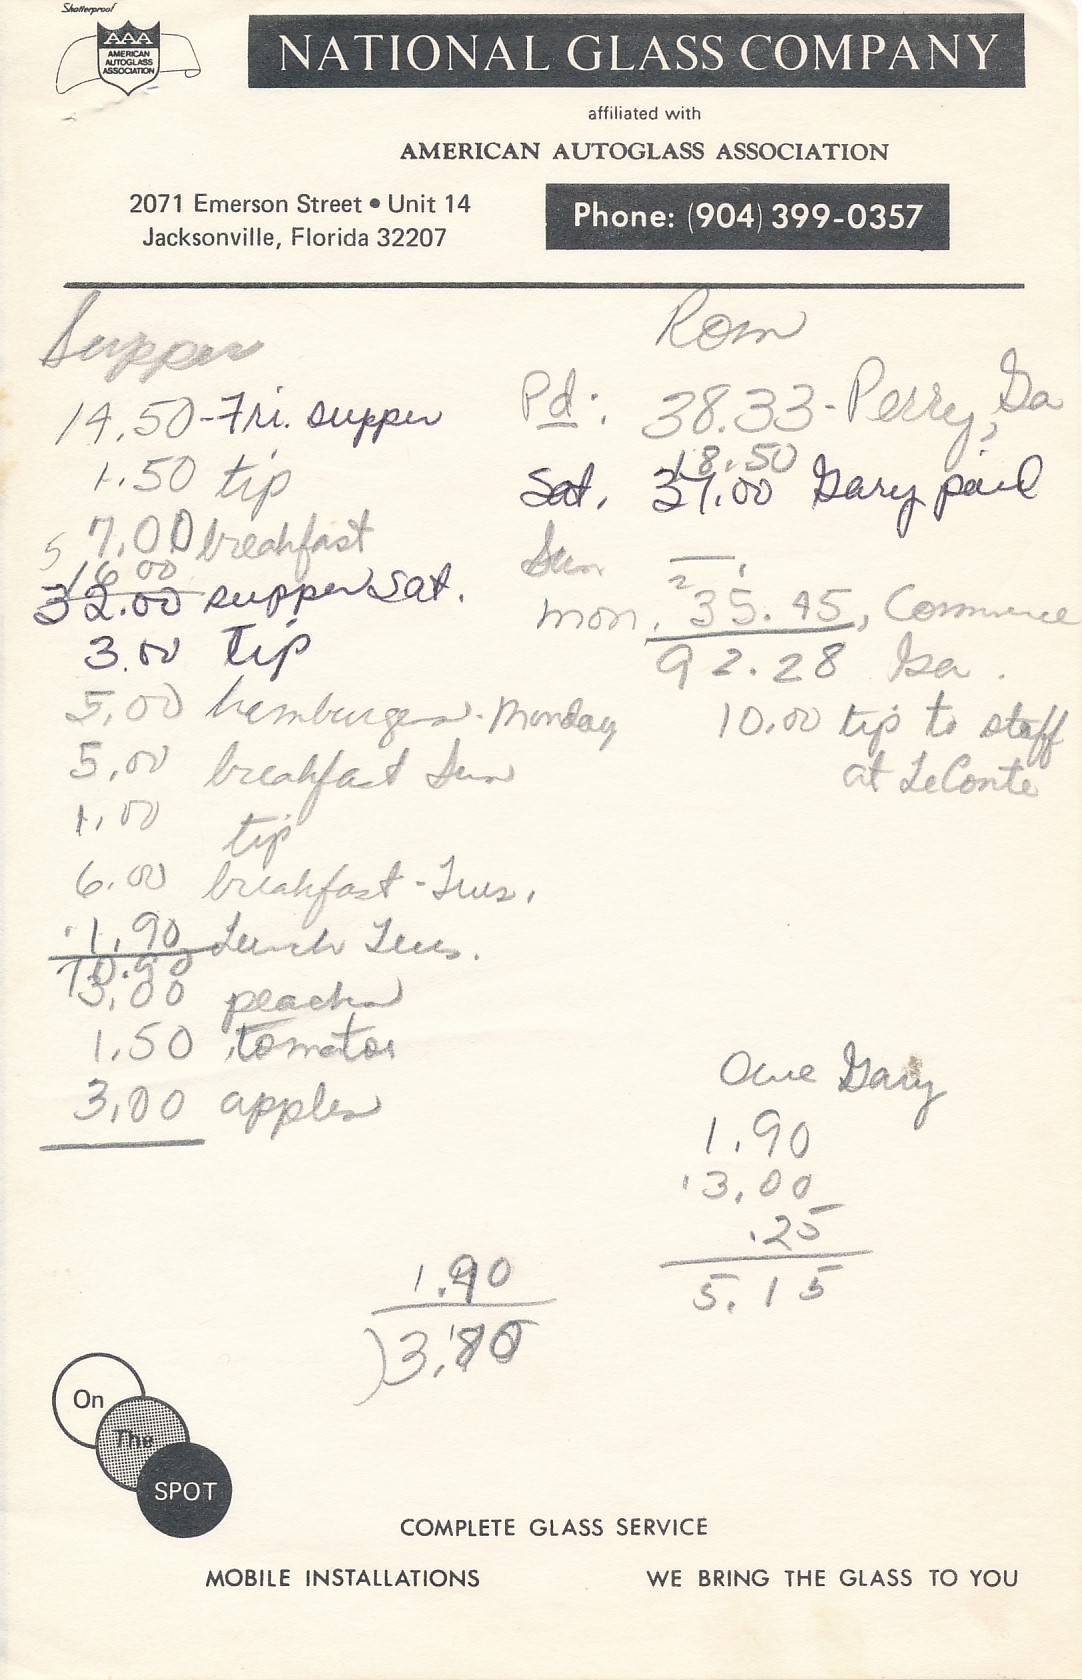 Shatterproof
AAA
AMERICAN
AUTOGLASS
ASSOCIATION
NATIONAL GLASS COMPANY
affiliated with
AMERICAN AUTOGLASS ASSOCIATION
2071 Emerson Street • Unit 14
Jacksonville, Florida 32207
Phone: (904) 399-0357
Supper
14.50 - Fri. supper
1.50 tip
5 7.00 breakfast
16.00
32.00 supper Sat.
3.00 tip
5.00 hamburgers - Monday
5.00 breakfast Sun
1.00 tip
6.00 breakfast - Tues.
1.90 Lunch Tues.
70.90
3.00 peaches
1.50 tomatoes
3.00 apples
Room
Pd: 38.33 - Perry, Ga
18.50
Sat. 37.00 Gary paid
Sun —
2
Mon. 35.45, Commerce
92.28 Ga.
10.00 tip to staff
at LeConte
Owe Gary
1.90
3.00
.25
5.15
1.90
3.80
On
The
SPOT
COMPLETE GLASS SERVICE
MOBILE INSTALLATIONS WE BRING THE GLASS TO YOU